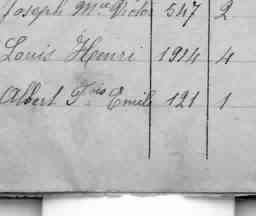 Joseph Mce Victor 547 2
Louis Henri 1914 4
Albert Fois Emile 121 1